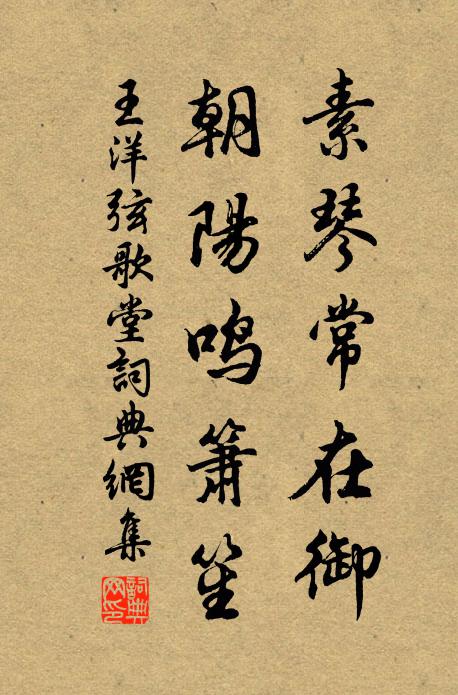 素琴常在御
朝陽鳴簫笙
王洋弦歌堂詞典網集
詞典网印